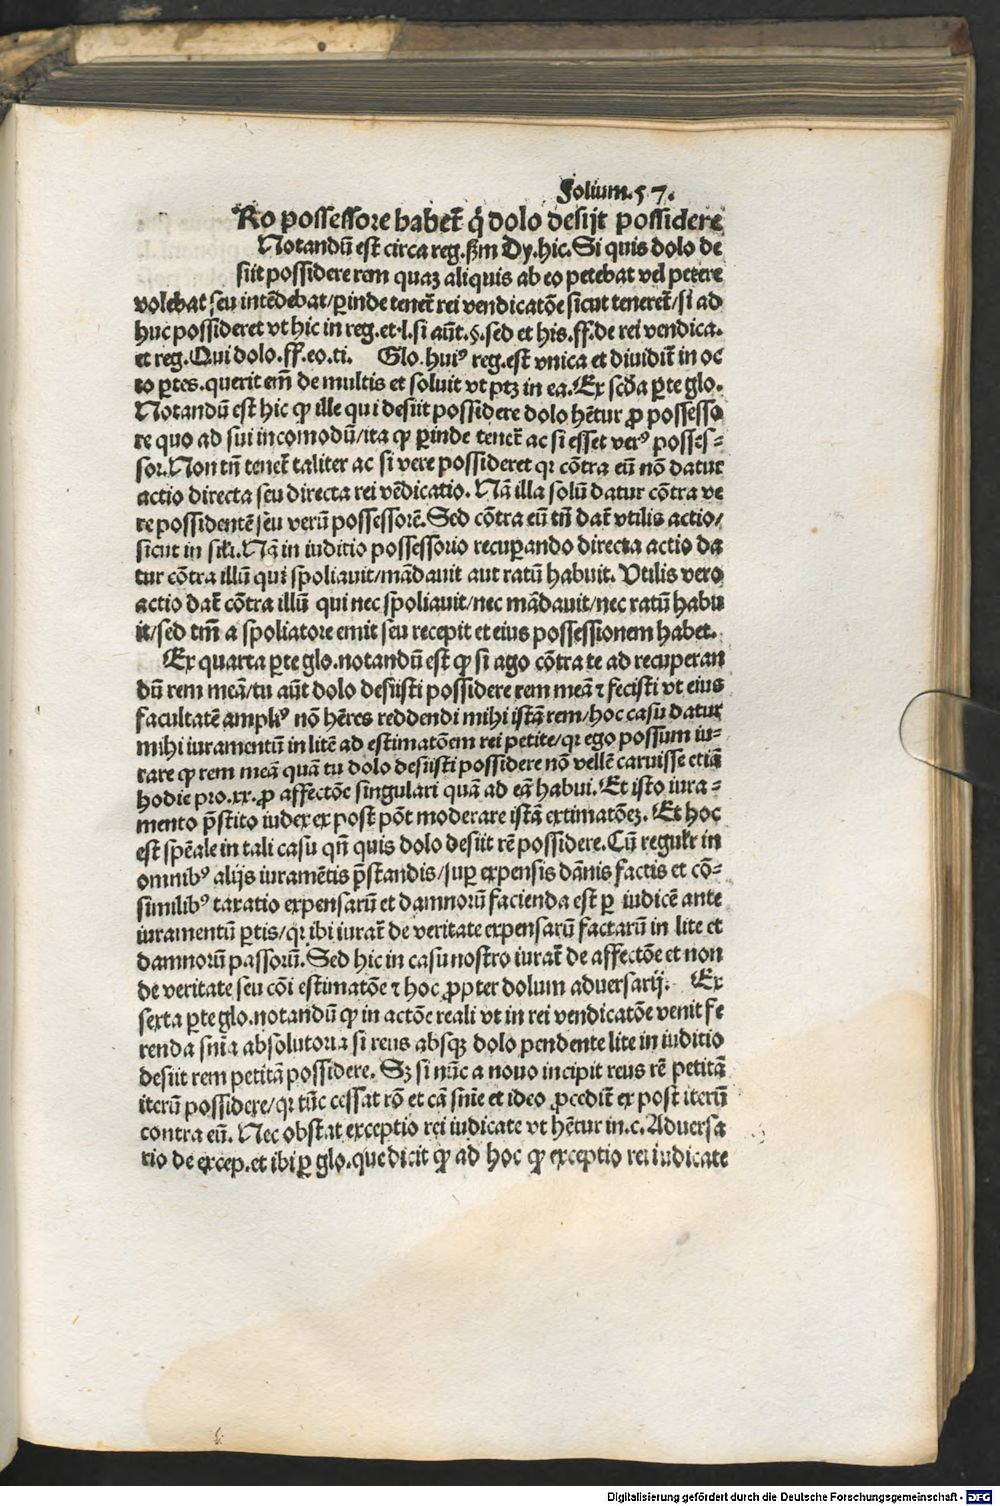 Folium.57.
Ro possessore habet̃ q̇ dolo desijt possidere
Notandũ est circa reg. ẜm Dy. hic. Si quis dolo de
siit possidere rem quaꝫ aliquis ab eo petebat vel petere
volebat seu intẽdebat/ꝑinde tenet̃ rei vendicatõe sicut teneret̃/si ad
huc possideret vt hic in reg. et .l. si aũt. §. sed et his. ff. de rei vendica.
et reg. Qui dolo. ff. eo. ti. Glo. huiꝰ reg. est vnica et diuidit̃ in oc
to ꝑtes. querit em̃ de multis et soluit vt ptꝫ in ea. Ex scd̃a ꝑte glo.
Notandũ est hic ꝙ ille qui desiit possidere dolo hẽtur ꝓ possesso
re quo ad sui incomodũ/ita ꝙ ꝑinde tenet̃ ac si esset verꝰ posses⸗
sor. Non tñ tenet̃ taliter ac si vere possideret qꝛ cõtra eũ nõ datur
actio directa seu directa rei vẽdicatio. Nã illa solũ datur cõtra ve
re possidentẽ seu verũ possessorẽ. Sed cõtra eũ tñ dat̃ vtilis actio/
sicut in sil̃i. Nã in iuditio possessorio recuꝑando directa actio da
tur cõtra illũ qui spoliauit/mãdauit aut ratũ habuit. Vtilis vero
actio dat̃ cõtra illũ qui nec spoliauit/nec mãdauit/nec ratũ habu
it/sed tm̃ a spoliatore emit seu recepit et eius possessionem habet.
Ex quarta ꝑte glo. notandũ est ꝙ si ago cõtra te ad recuperan
dũ rem meã/tu aũt dolo desiisti possidere rem meã ⁊ fecisti vt eius
facultatẽ ampliꝰ nõ hẽres reddendi mihi istã rem/hoc casu datur
mihi iuramentũ in litẽ ad estimatõem rei petite/qꝛ ego possum iu⸗
rare ꝙ rem meã quã tu dolo desiisti possidere nõ vellẽ caruisse etiã
hodie pro .xx. ꝓ affectõe singulari quã ad eã habui. Et isto iura⸗
mento p̃stito iudex ex post põt moderare istã extimatõeꝫ. Et hoc
est spẽale in tali casu qñ quis dolo desiit rẽ possidere. Cũ regulr̃ in
omnibꝰ alijs iuramẽtis p̃standis/suꝑ expensis dãnis factis et cõ⸗
similibꝰ taxatio expensarũ et damnorũ facienda est ꝑ iudicẽ ante
iuramentũ ꝑtis/qꝛ ibi iurat̃ de veritate expensarũ factarũ in lite et
damnorũ passorũ. Sed hic in casu nostro iurat̃ de affectõe et non
de veritate seu cõi estimatõe ⁊ hoc ꝓpter dolum aduersarij. Ex
sexta ꝑte glo. notandũ ꝙ in actõe reali vt in rei vendicatõe venit fe
renda sñia absolutoria si reus absqꝫ dolo pendente lite in iuditio
desiit rem petitã possidere. Sꝫ si nũc a nouo incipit reus rẽ petitã
iterũ possidere/qꝛ tũc cessat rõ et cã sñie et ideo ꝓcedit̃ ex post iterũ
contra eũ. Nec obstat exceptio rei iudicate vt hẽtur in .c. Aduersa
rio de excep. et ibi ꝑ glo. que dicit ꝙ ad hoc ꝙ exceptio rei iudicate
Digitalisierung gefördert durch die Deutsche Forschungsgemeinschaft - DFG